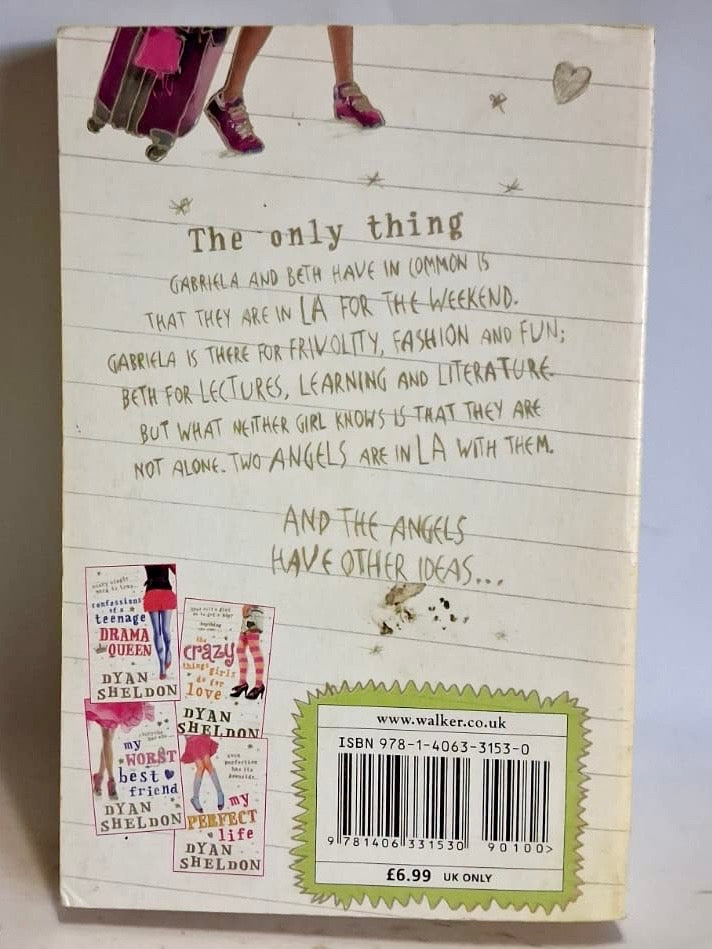 The only thing
GABRIELA AND BETH HAVE IN COMMON IS
THAT THEY ARE IN LA FOR THE WEEKEND.
GABRIELA IS THERE FOR FRIVOLITY, FASHION AND FUN;
BETH FOR LECTURES, LEARNING AND LITERATURE.
BUT WHAT NEITHER GIRL KNOWS IS THAT THEY ARE
NOT ALONE. TWO ANGELS ARE IN LA WITH THEM.
AND THE ANGELS
HAVE OTHER IDEAS...
confessions
of a
teenage
DRAMA
QUEEN
DYAN
SHELDON
the
crazy
things girls
do for
love
DYAN
SHELDON
my
WORST
best
friend
DYAN
SHELDON
even
perfection
has its
downside...
my
PERFECT
life
DYAN
SHELDON
www.walker.co.uk
ISBN 978-1-4063-3153-0
9 781406 331530
90100>
£6.99 UK ONLY